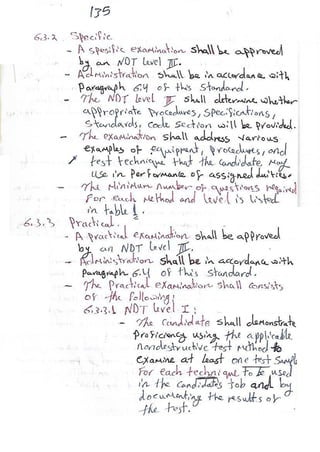 135
6.3.2 Specific
- A spesific examination shall be approved
by an NDT Level III.
- Administration shall be in accordance with
Paragraph 6.4 of this Standard.
- The NDT Level III shall determine whether
appropriate Procedures, Specifications,
Standards, Code Section will be Provided.
- The examination shall address various
examples of equipment, procedures, and
test technique that the candidate may
use in performance of assigned duities.
- The Minimum number of questions required
For each Method and Level is listed
in table 1.
6.3.3 Practical
- A Practical examination shall be approved
by an NDT Level III.
- Administration shall be in accordance with
Paragraph 6.4 of this Standard.
- The Practical examination shall consists
of the following:
6.3.3.1 NDT Level I:
- The Candidate shall demonstrate
Proficiency using the applicable
nondestructive test Method to
examine at least one test Sample
For each technique to be used
in the candidates Job and by
documenting the results of
the test.